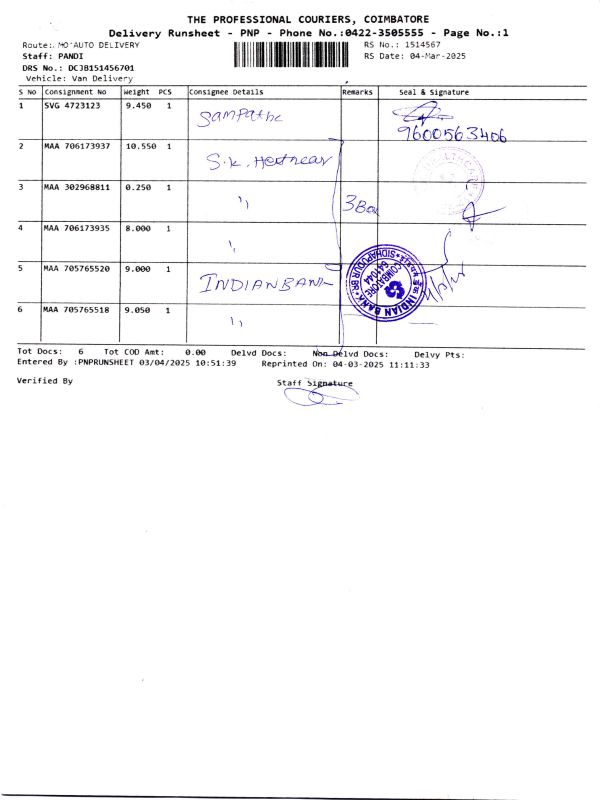 THE PROFESSIONAL COURIERS, COIMBATORE
Delivery Runsheet - PNP - Phone No.:0422-3505555 - Page No.:1
Route:. MO'AUTO DELIVERY RS No.: 1514567
Staff: PANDI RS Date: 04-Mar-2025
DRS No.: DCJB151456701
Vehicle: Van Delivery
S No Consignment No Weight PCS Consignee Details Remarks Seal & Signature
1 SVG 4723123 9.450 1 Sampathc
9600563406
2 MAA 706173937 10.550 1 S.K.
3 MAA 302968811 0.250 1 " 3 Box
4 MAA 706173935 8.000 1 "
5 MAA 705765520 9.000 1 INDIAN BANK
INDIAN BANK
SIDHAPUDUR BR.
COIMBATORE
641044
6 MAA 705765518 9.050 1 "
Tot Docs: 6 Tot COD Amt: 0.00 Delvd Docs: Non Delvd Docs: Delvy Pts:
Entered By :PNPRUNSHEET 03/04/2025 10:51:39 Reprinted On: 04-03-2025 11:11:33
Verified By Staff Signature